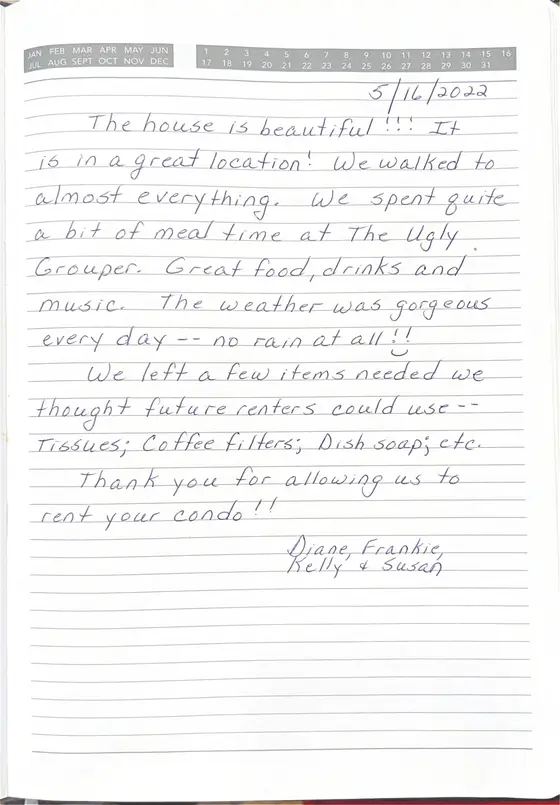 JAN FEB MAR APR MAY JUN 1 2 3 4 5 6 7 8 9 10 11 12 13 14 15 16
JUL AUG SEPT OCT NOV DEC 17 18 19 20 21 22 23 24 25 26 27 28 29 30 31
5/16/2022
The house is beautiful!!! It
is in a great location! We walked to
almost everything. We spent quite
a bit of meal time at The Ugly
Grouper. Great food, drinks and
music. The weather was gorgeous
every day -- no rain at all!!
We left a few items needed we
thought future renters could use --
Tissues; Coffee filters; Dish soap; etc.
Thank you for allowing us to
rent your condo!!
Diane, Frankie,
Kelly & Susan